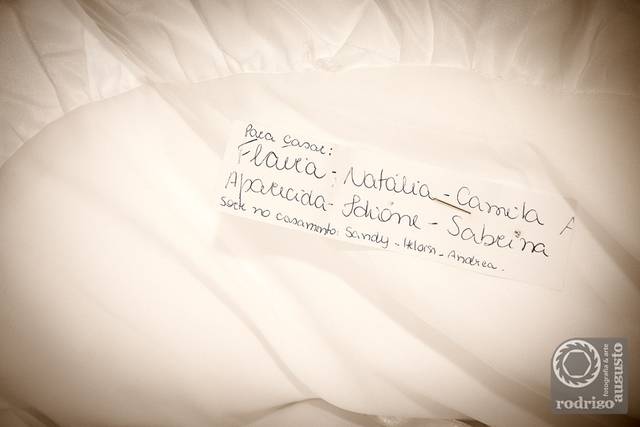 Para casar:
Flavia - Natália - Camila A
Aparecida - Idione - Sabrina
Sorte no casamento: Sandy - Heloisa - Andrea.
fotografia & arte
rodrigo
augusto